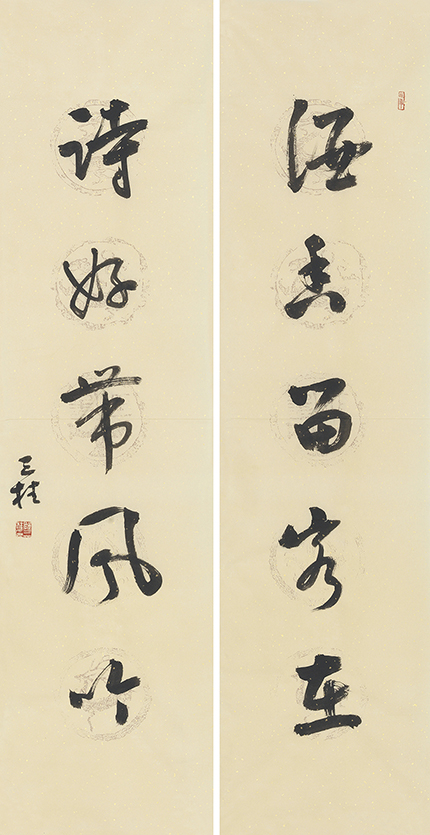 酒香留客在
诗好带风吟
三桂